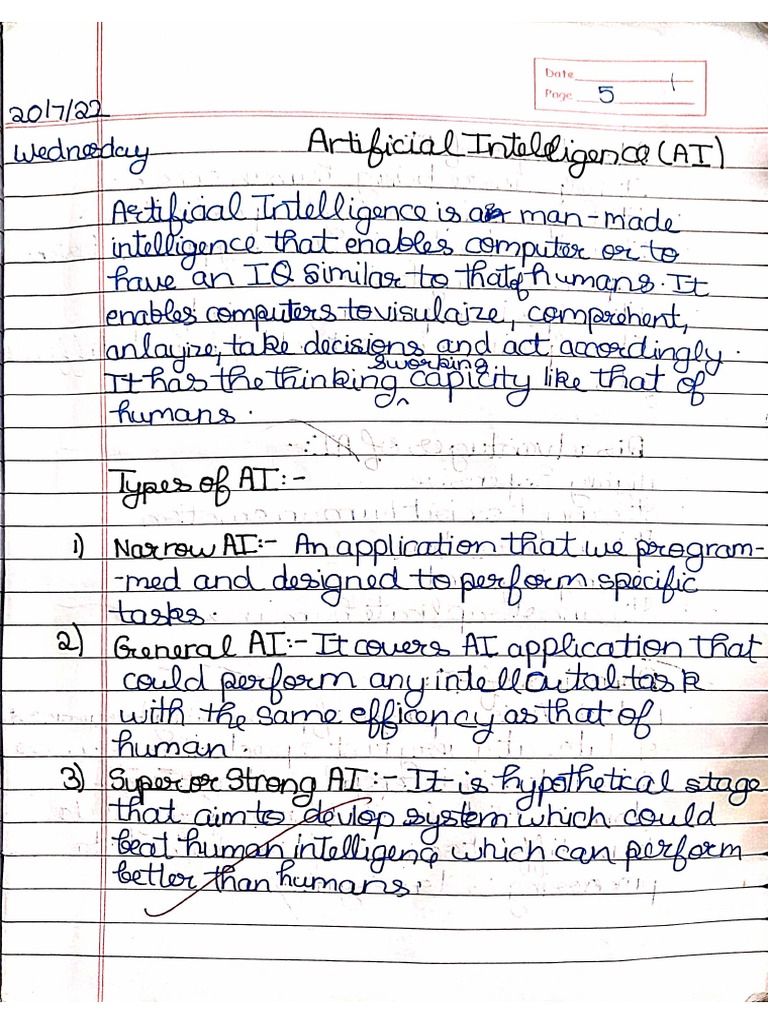 Date
Page 5
20/7/22
Wednesday
Artificial Intelligence (AI)
Artificial Intelligence is a man-made
intelligence that enables computer or to
have an IQ similar to that of humans. It
enables computers to visulaize, comprehent,
anlayize, take decisions and act accordingly.
sworking
It has the thinking ^ capicity like that of
humans.
Types of AI :-
1) Narrow AI :- An application that we program-
-med and designed to perform specific
tasks.
2) General AI :- It covers AI application that
could perform any intellcutal task
with the same efficency as that of
human.
3) Super or Strong AI :- It is hypothetical stage
that aim to devlop system which could
beat human intelligence which can perform
better than humans.